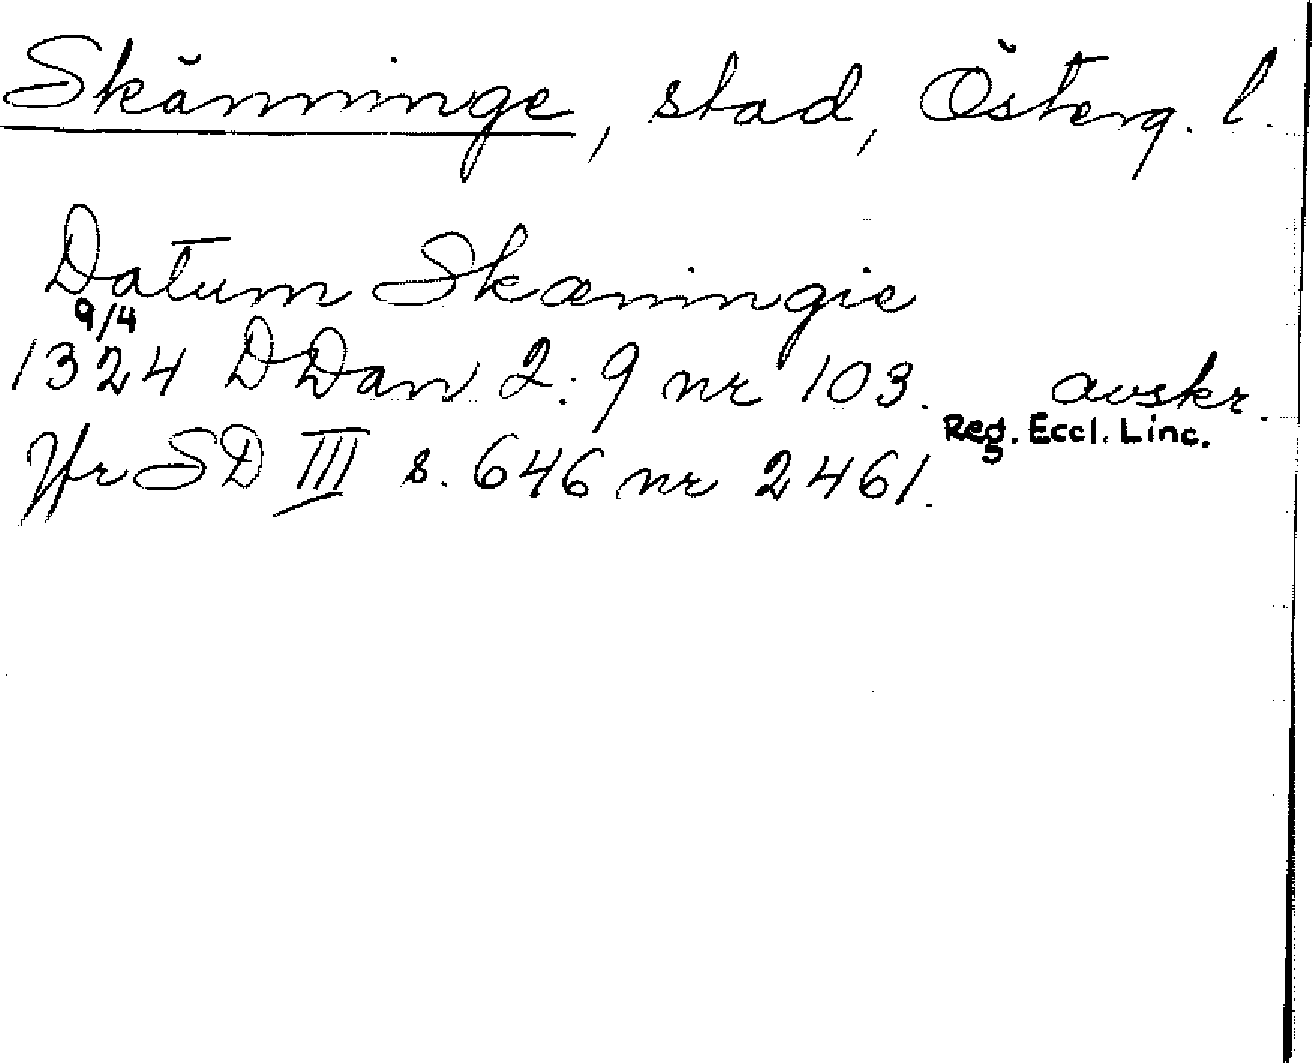 Skänninge, stad, Österg. l.
Datum Skæningie
9/4
1324 DDan 2:9 nr 103. avskr.
Reg. Eccl. Linc.
Jfr SD III s. 646 nr 2461.